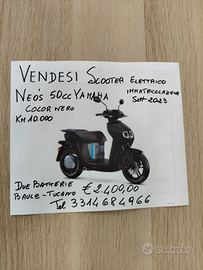 VENDESI SCOOTER ELETTRICO
NEO'S 50cc YAMAHA IMMATRICOLAZIONE
COLOR NERO SETT 2023
KM 10.000
DUE BATTERIE € 2.400,00
BAULE - TUCANO
Tel 3314684966
subito